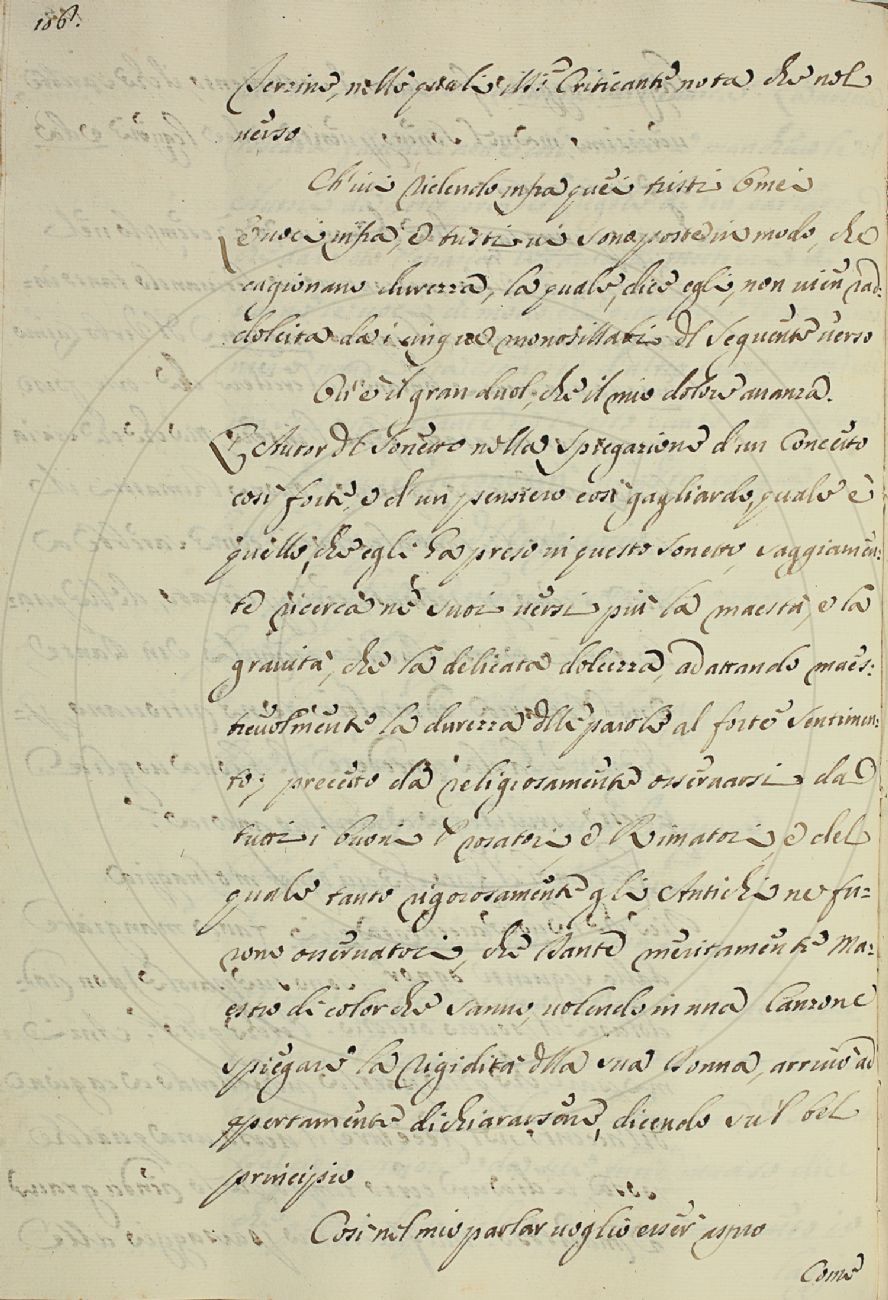 186t.
Terzine, nelle quali il Sr. Criticante nota che nel
verso
Ch'ivi ridendo infra quei tristi Omei
le voci infra, e tristi vi sono poste in modo, che
cagionano durezza, la quale, dice egli, non vien rad=
dolcita da i cinque monosillabi dl seguente verso
Ov'è il gran duol, che il mio dolore avanza.
L'Autor dl Sonetto nella spiegazione d'un Concetto
così forte, e d'un pensiero così gagliardo, quale è
quello, che egli ha preso in questo Sonetto, saggiamen=
te ricerca ne' suoi versi più la maestà, e la
gravità, che la delicata dolcezza, adattando maes=
trevolmente la durezza dlle parole al forte sentimen=
to; precetto da religiosamente osservarsi da
tutti i buoni Prosatori, e Rimatori, e del
quale tanto rigorosamente gli Antichi ne fu=
rono osservatori, che Dante meritamente Ma=
estro di color che sanno, volendo in una Canzone
spiegare la rigidità dlla sua Donna, arrivò ad
apertamente dichiararsene, dicendo sul bel
principio
Così nel mio parlar voglio esser aspro
Come